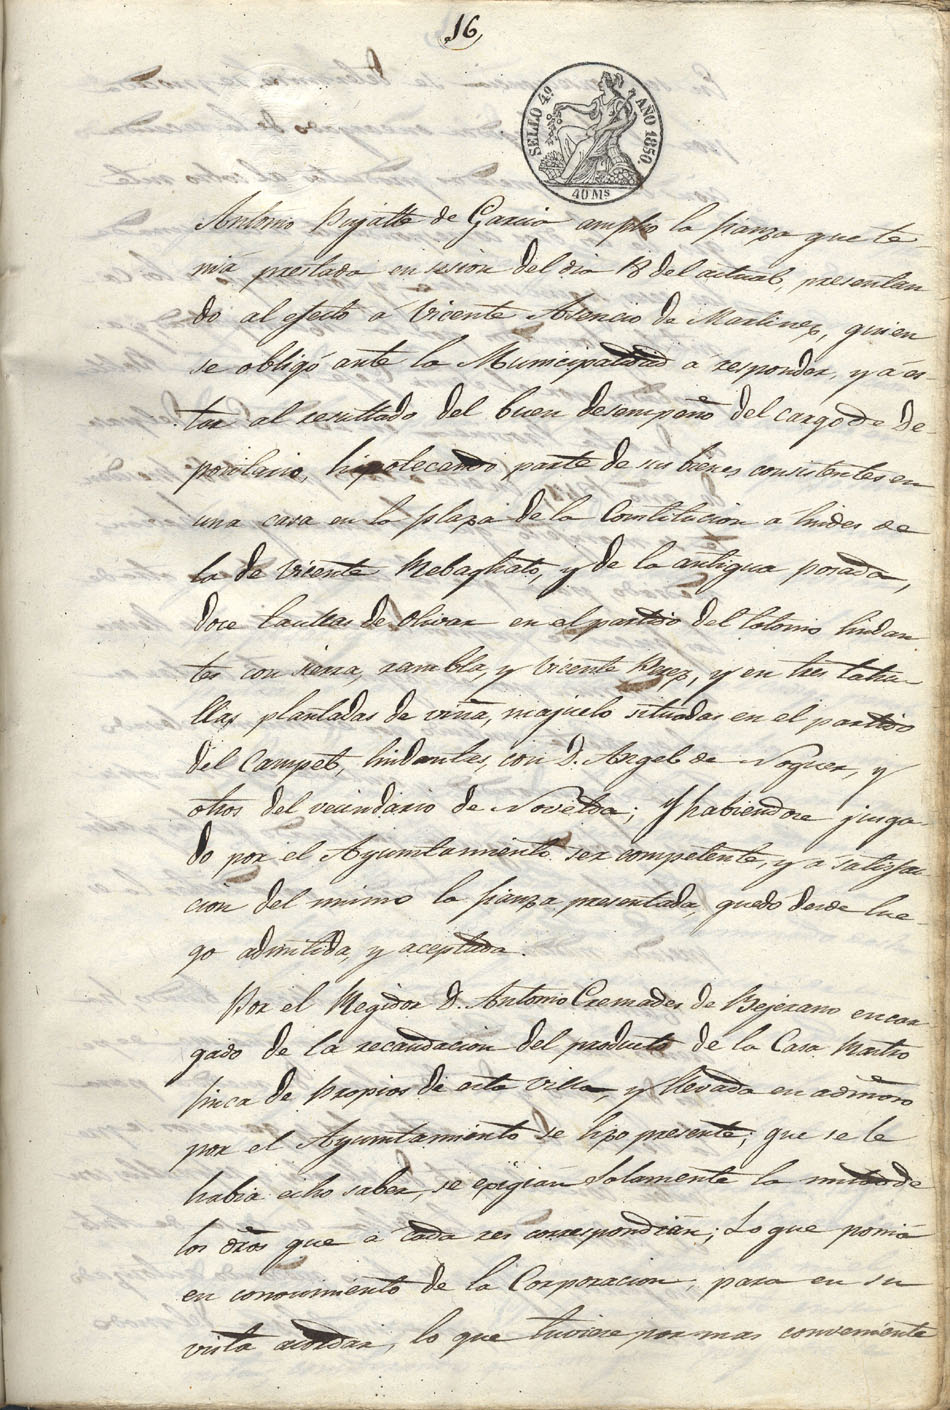 16
SELLO 4º AÑO 1850.
40 Ms
Antonio Pujalte de Garcia amplio la fianza que te-
nia prestada en sesion del dia 18 del actual, presentan
do al efecto á Vicente Asencio de Martinez, quien
se obligó ante la Municipalidad á responder, y á es-
tar al resultado del buen desempeño del cargo de De-
positario, hipotecando parte de sus bienes consistentes en
una casa en la plaza de la Constitucion a lindes de
la de Vicente Rebagliato, y de la antigua posada,
doce taullas de Olivar en el partido del lindan
tes con sierra, rambla, y Vicente y en tres tahu-
llas plantadas de viña, majuelo situadas en el partido
del Campet, lindantes, con D. Angel de Noguer, y
otros del vecindario de Novelda; y habiendose juzga-
do por el Ayuntamiento ser competente, y á satisfac
cion del mismo la fianza presentada, quedo desde lue-
go admitida, y aceptada.
Por el Regidor D. Antonio Cremades de Bejerano encar
gado de la recaudacion del producto de la Casa Rastro
finca de Propios de esta Villa, y llevada en admon
por el Ayuntamiento se hizo presente; que se le
habia echo saber, se exigian solamente la mitad de
los dros que á cada res correspondian; Lo que ponia
en conocimiento de la Corporacion, para en su
vista acordar, lo que tuviese por mas conveniente